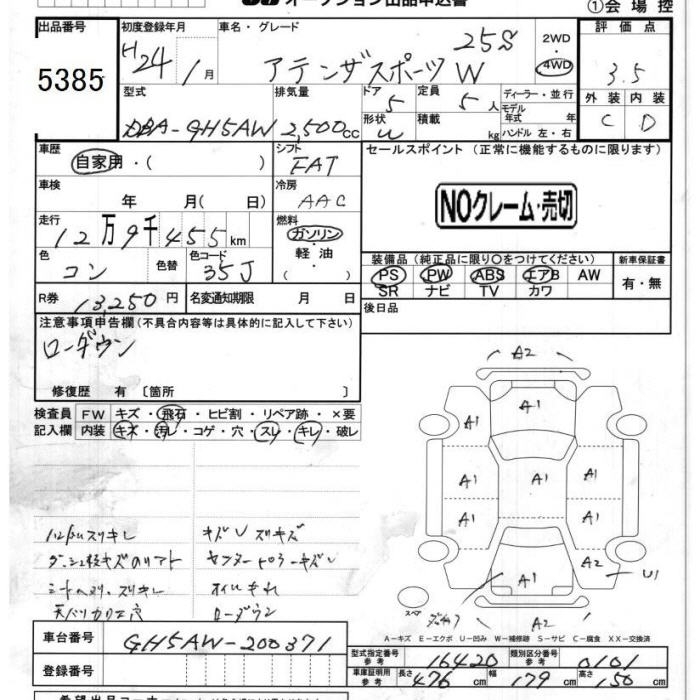 ①会場控
出品番号
5385
初度登録年月
H24年 1月
車名・グレード
アテンザスポーツW 25S
2WD
4WD
評価点
3.5
外装 内装
C D
型式
DBA-GH5AW
排気量
2,500cc
ドア
5
定員
5人
形状
W
積載
kg
ディーラー・並行
モデル
年式 年
ハンドル 左・右
車歴
自家用・( )
シフト
FAT
車検
年 月(日)
冷房
AAC
走行
12万9千455km
燃料
ガソリン・
軽油・
( )
色
コン
色替
色コード
35J
R券
13,250円
名変通知期限 月 日
セールスポイント(正常に機能するものに限ります)
NOクレーム・売切
装備品(純正品に限り○をつけてください)
PS PW ABS エアB AW
SR ナビ TV カワ
新車保証書
有・無
後日品
注意事項申告欄(不具合内容等は具体的に記入して下さい)
ローダウン
修復歴 有〔箇所 〕
検査員 FW キズ・飛石・ヒビ割・リペア跡・×要
記入欄 内装 キズ・汚レ・コゲ・穴・スレ・キレ・破レ
キズUスリキズ
オイルモレ
ローダウン
A2
A1
A1
A1
A1
A1
A1
A1
A1
A2
U1
A1
A2
スペア
A-キズ E-エクボ U-凹み W-補修跡 S-サビ C-腐食 XX-交換済
車台番号
GH5AW-200371
登録番号
型式指定番号
参考
16420
類別区分番号
参考
0101
車庫証明用
参考
長さ
476cm
幅
179cm
高さ
150cm